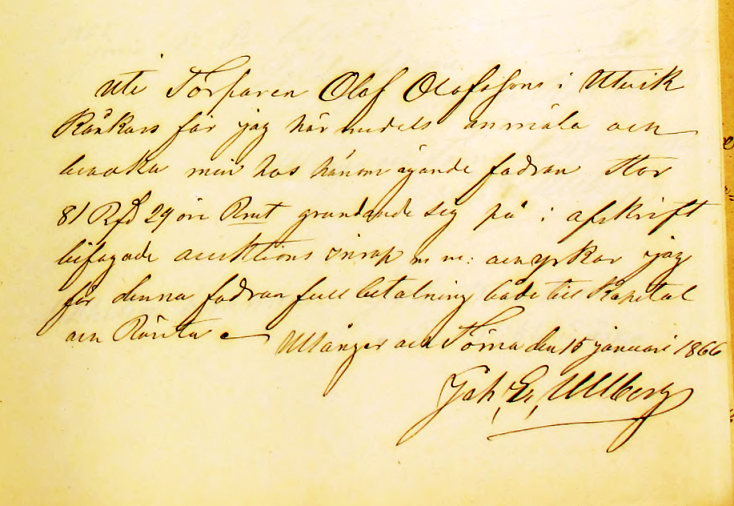 uti Torparen Olof Olofssons i Utvik
Konkurs får jag härmedels anmäla och
bevaka min hos honom ägande fodran stor
81 Rd 29 öre Rmt grundande sig på i afskrift
bifogade auktions inrop m m: och yrkar jag
för denna fodran full betalning både till Kapital
och Ränta
Ullånger och Torna den 15 januari 1866
Joh, Er, Ullberg